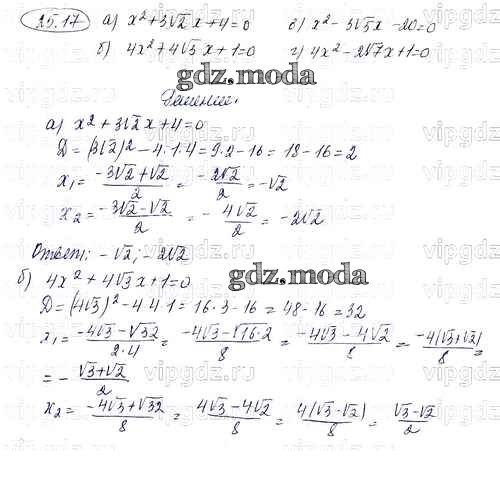 25.17 а) x² + 3√2 x + 4 = 0 в) x² - 3√5 x - 20 = 0
б) 4x² + 4√3 x + 1 = 0 г) 4x² - 2√7 x + 1 = 0
gdz.moda
Решение.
а) x² + 3√2 x + 4 = 0
D = (3√2)² - 4·1·4 = 9·2 - 16 = 18 - 16 = 2
x₁ = (-3√2 + √2)/2 = - 2√2/2 = -√2
x₂ = (-3√2 - √2)/2 = - 4√2/2 = -2√2
Ответ: -√2; -2√2
gdz.moda
б) 4x² + 4√3 x + 1 = 0
D = (4√3)² - 4·4·1 = 16·3 - 16 = 48 - 16 = 32
x₁ = (-4√3 - √32)/(2·4) = (-4√3 - √16·2)/8 = (-4√3 - 4√2)/8 = -4(√3+√2)/8 =
= - (√3+√2)/2
x₂ = (-4√3 + √32)/8 = (4√3 - 4√2)/8 = 4(√3-√2)/8 = (√3-√2)/2